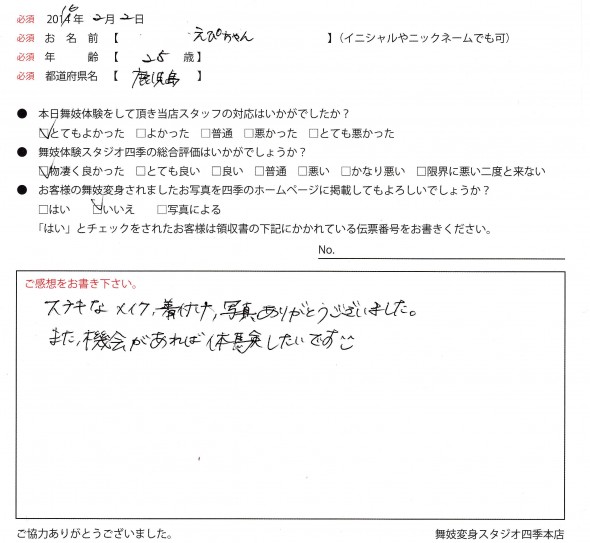 必須 2016年 2月 2日
必須 お 名 前 【 えぴちゃん 】(イニシャルやニックネームでも可)
必須 年 齢 【 25 歳】
必須 都道府県名 【 鹿児島 】
● 本日舞妓体験をして頂き当店スタッフの対応はいかがでしたか?
☑とてもよかった □よかった □普通 □悪かった □とても悪かった
● 舞妓体験スタジオ四季の総合評価はいかがでしょうか?
☑物凄く良かった □とても良い □良い □普通 □悪い □かなり悪い □限界に悪い二度と来ない
● お客様の舞妓変身されましたお写真を四季のホームページに掲載してもよろしいでしょうか?
□はい ☑いいえ □写真による
「はい」とチェックをされたお客様は領収書の下記にかかれている伝票番号をお書きください。
No.
ご感想をお書き下さい。
ステキなメイク,着付け,写真ありがとうございました。
また,機会があれば体験したいです
ご協力ありがとうございました。 舞妓変身スタジオ四季本店